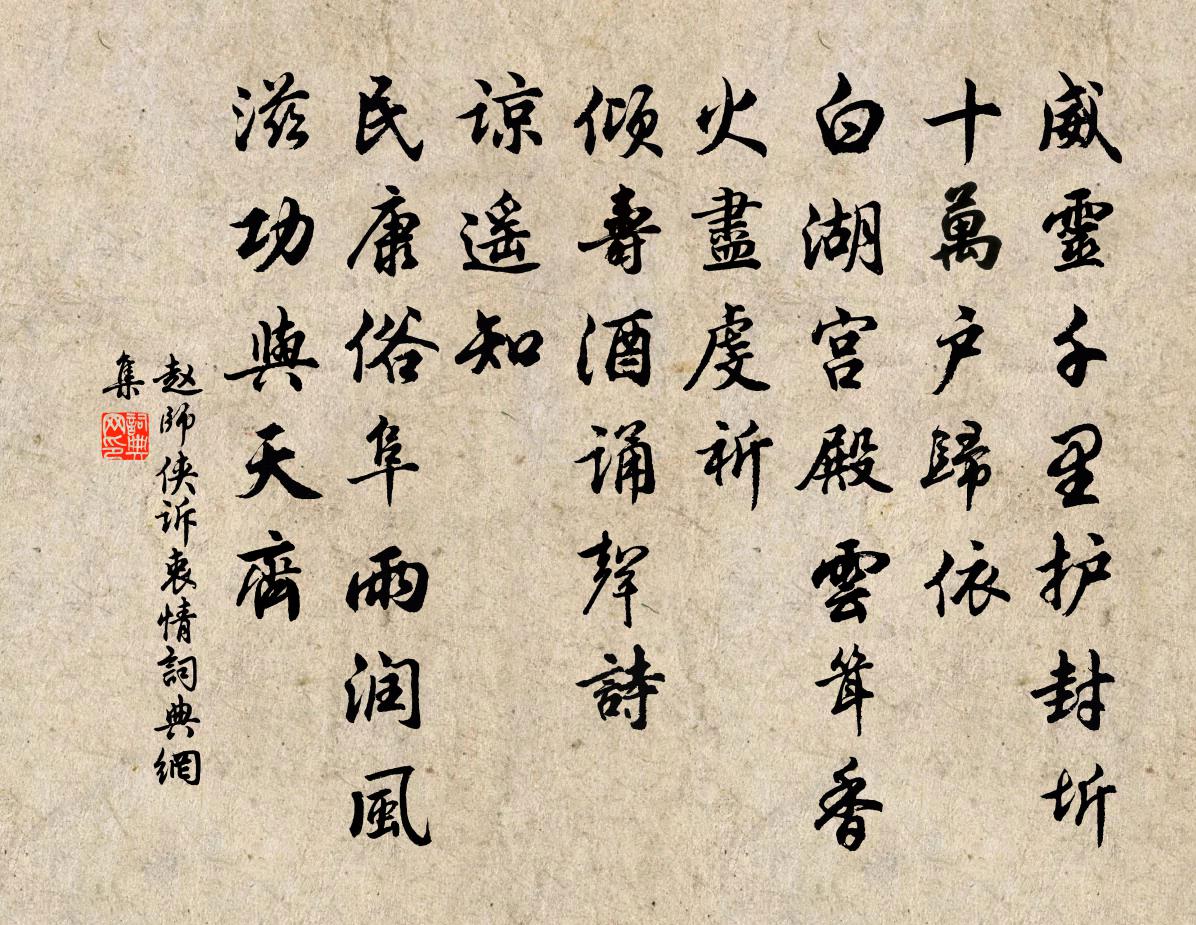 威靈千里护封圻
十萬户歸依
白湖宫殿雲耸香
火盡虔祈
倾壽酒诵聲詩
谅遥知
民康俗阜雨润風
滋功與天齊
赵師侠诉衷情詞典網
集
詞典网印